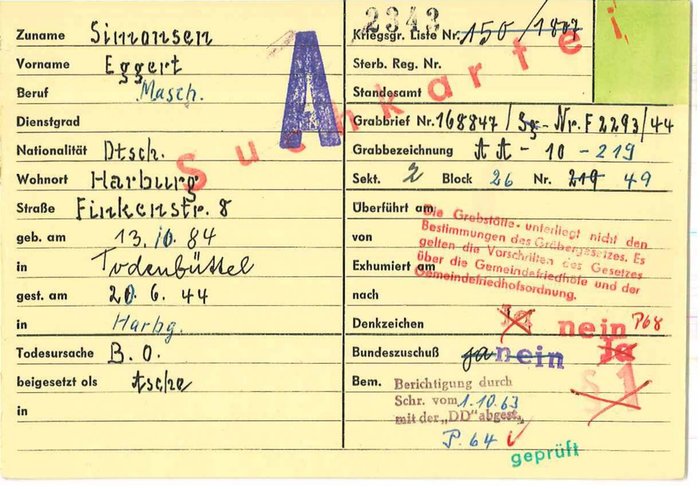 2343
Zuname Simonsen
Vorname Eggert
Beruf Masch.
Dienstgrad
Nationalität Dtsch.
Wohnort Harburg
Straße Finkenstr. 8
geb. am 13. 10. 84
in Todenbüttel
gest. am 20. 6. 44
in Harbg.
Todesursache B. O.
beigesetzt als Asche
in
A
Suchkartei
Kriegsgr. Liste Nr. 150/1807
Sterb. Reg. Nr.
Standesamt
Grabbrief Nr. 168847 / Sg.-Nr. F 2293/44
Grabbezeichnung AA - 10 - 219
Sekt. 2 Block 26 Nr. 219 49
Überführt am
von
Exhumiert am
nach
Die Grabstätte unterliegt nicht den
Bestimmungen des Gräbergesetzes. Es
gelten die Vorschriften des Gesetzes
über die Gemeindefriedhöfe und der
Gemeindefriedhofsordnung.
Denkzeichen Ja nein P68
Bundeszuschuß ja nein Ja
§ 1
Bem. Berichtigung durch
Schr. vom 1.10.63
mit der „DD" abgest.
P. 64
geprüft